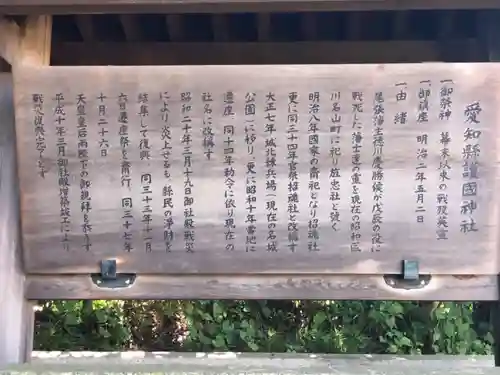 愛知縣護國神社
一御祭神　幕末以来の戦歿英霊
一御鎮座　明治二年五月二日
一由　緒
尾張藩主徳川慶勝侯が戊辰の役に
戦死した藩士達の霊を現在の昭和区
川名山町に祀り旌忠社と號く
明治八年國家の齋祀となり招魂社
更に同三十四年官祭招魂社と改稱す
大正七年城北練兵場（現在の名城
公園）に移り更に昭和十年當地に
遷座　同十四年勅令に依り現在の
社名に改稱す
昭和二十年三月十九日御社殿戦災
により炎上せるも縣民の浄財を
結集して復興　同三十三年十一月
六日遷座祭を齋行す　同三十七年
十月二十六日
天皇皇后両陛下の御親拝を忝うす
平成十年三月御社殿増築竣工により
戦災復興を完了す